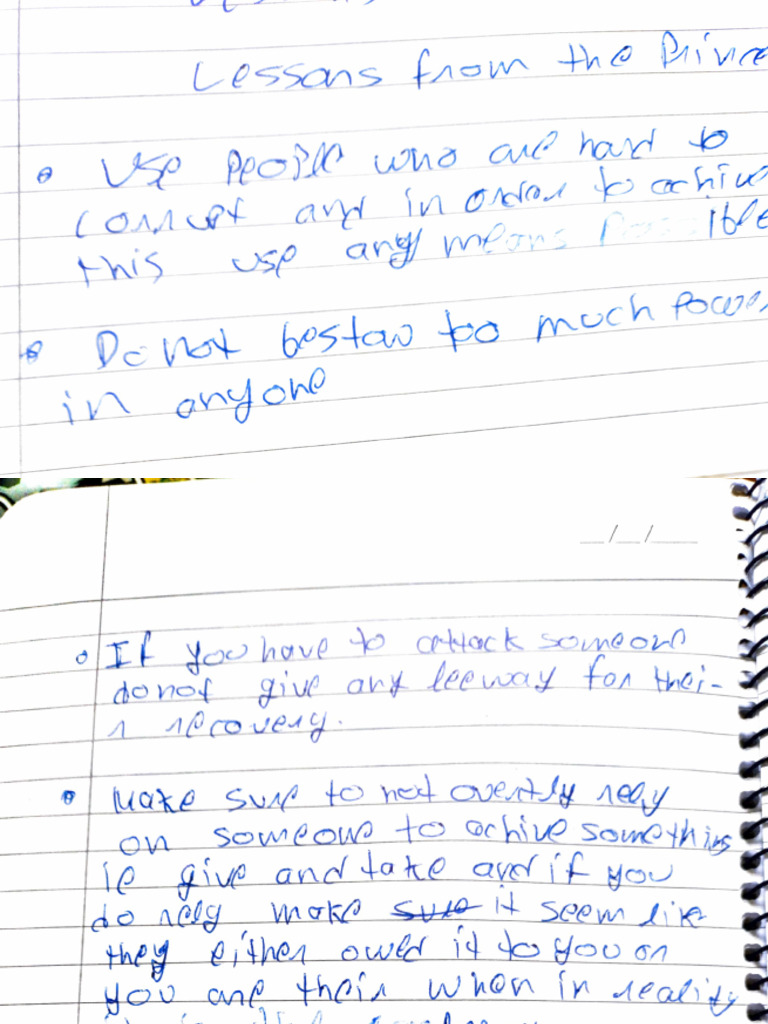 Lessons from the Prince
• Use people who are hard to
corrupt and in order to achive
this use any means possible
• Do not bestow too much power
in anyone
__/__/____
• If you have to attack someone
do not give any leeway for thei-
r recovery.
• Make sure to not overtly rely
on someone to achive something
ie give and take and if you
do rely make sure it seem like
they either owed it to you or
you are their when in reality